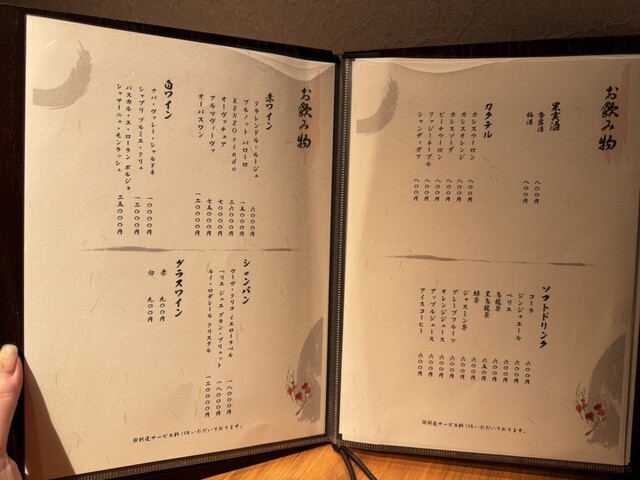 お飲み物
果実酒
杏露酒 八〇〇円
梅酒 八〇〇円
カクテル
カシスウーロン 八〇〇円
カシスオレンジ 八〇〇円
カシスソーダ 八〇〇円
ピーチウーロン 八〇〇円
ファジーネーブル 八〇〇円
シャンディガフ 八〇〇円
ソフトドリンク
コーラ 六〇〇円
ジンジャエール 六〇〇円
ペリエ 六〇〇円
烏龍茶 六〇〇円
黒烏龍茶 六五〇円
緑茶 六〇〇円
ジャスミン茶 六〇〇円
グレープフルーツ 六〇〇円
オレンジジュース 六〇〇円
アップルジュース 六〇〇円
アイスコーヒー 六〇〇円
※別途サービス料10%いただいております。
お飲み物
赤ワイン
フルレンドル・ルージュ 六〇〇〇円
プルノット バローロ 一五〇〇〇円
KENZO rindo 二六〇〇〇円
オーヴァチュア 七〇〇〇〇円
アルマヴィーヴァ 七五〇〇〇円
オーパスワン 一二〇〇〇〇円
白ワイン
ナパ・ヴァレー・シャルドネ 一〇〇〇〇円
シャブリ プルミエ・クリュ 一二〇〇〇円
パスカル・エ・ローラン ボルジョ
シャサーニュ・モンラッシェ 三五〇〇〇円
シャンパン
ヴーヴ・クリコ イエローラベル 一八〇〇〇円
ペリエ ジュエ グラン・ブリュット 一八〇〇〇円
ルイ・ロデレール クリスタル 一二〇〇〇〇円
グラスワイン
赤 九〇〇円
白 九〇〇円
※別途サービス料10%いただいております。